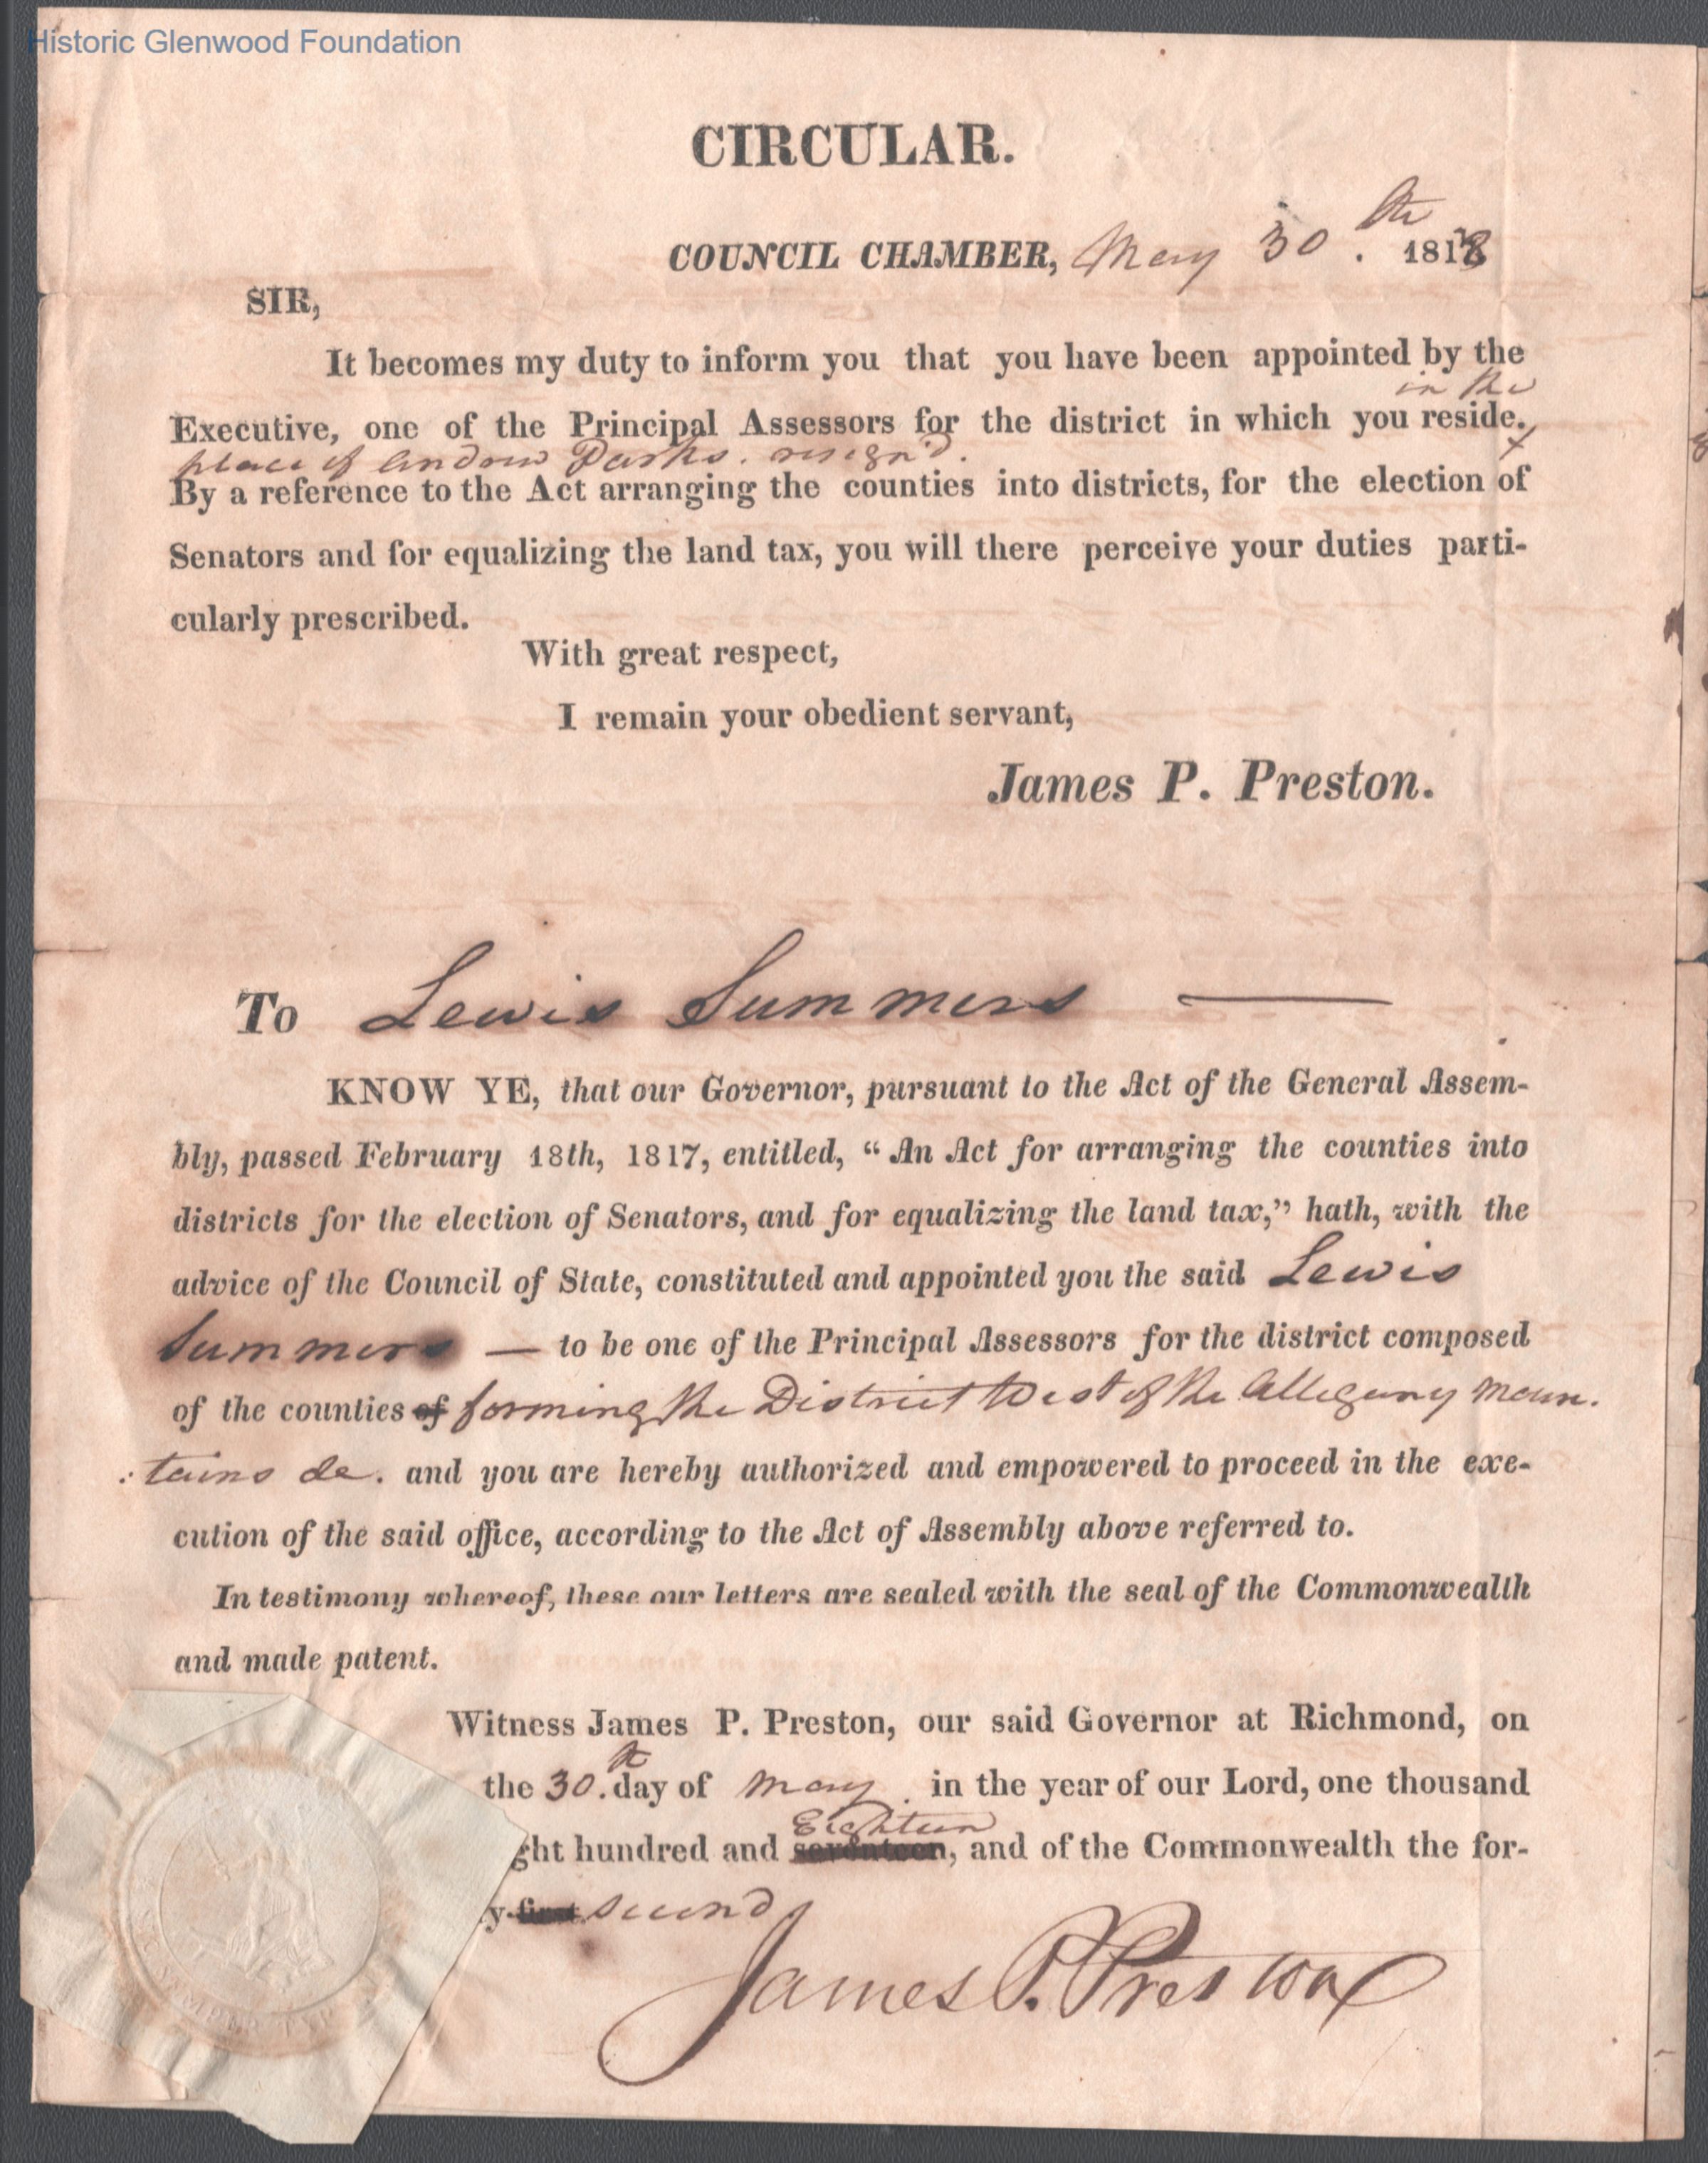 Historic Glenwood Foundation
CIRCULAR.
COUNCIL CHAMBER, May 30.th 1818
SIR,
It becomes my duty to inform you that you have been appointed by the
in the
Executive, one of the Principal Assessors for the district in which you reside.
place of Andrew Parks. resign'd.
By a reference to the Act arranging the counties into districts, for the election of
Senators and for equalizing the land tax, you will there perceive your duties parti-
cularly prescribed.
With great respect,
I remain your obedient servant,
James P. Preston.
To Lewis Summers —
KNOW YE, that our Governor, pursuant to the Act of the General Assem-
bly, passed February 18th, 1817, entitled, “An Act for arranging the counties into
districts for the election of Senators, and for equalizing the land tax,” hath, with the
advice of the Council of State, constituted and appointed you the said Lewis
Summers — to be one of the Principal Assessors for the district composed
of the counties of forming the District West of the Allegany Moun.
:tains &c. and you are hereby authorized and empowered to proceed in the exe-
cution of the said office, according to the Act of Assembly above referred to.
In testimony whereof, these our letters are sealed with the seal of the Commonwealth
and made patent.
Witness James P. Preston, our said Governor at Richmond, on
the 30.th day of May in the year of our Lord, one thousand
Eighteen
ght hundred and seventeen, and of the Commonwealth the for-
y-first second
James P. Preston